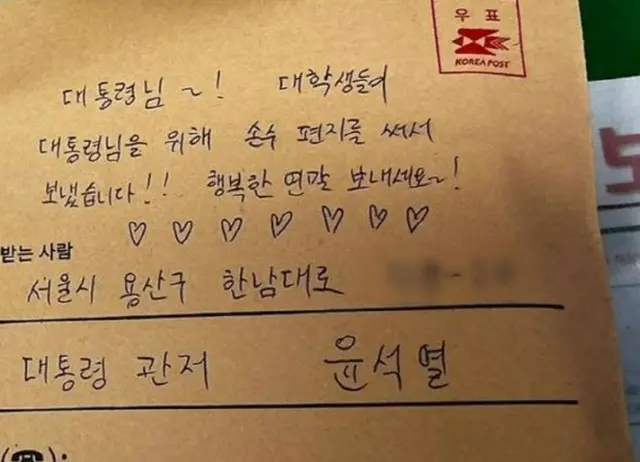 우 표
KOREA POST
대통령님~! 대학생들이
대통령님을 위해 손수 편지를 써서
보냈습니다!! 행복한 연말 보내세요~!
♡ ♡ ♡ ♡ ♡ ♡ ♡
받는 사람
서울시 용산구 한남대로
대통령 관저 윤석열
(☎):